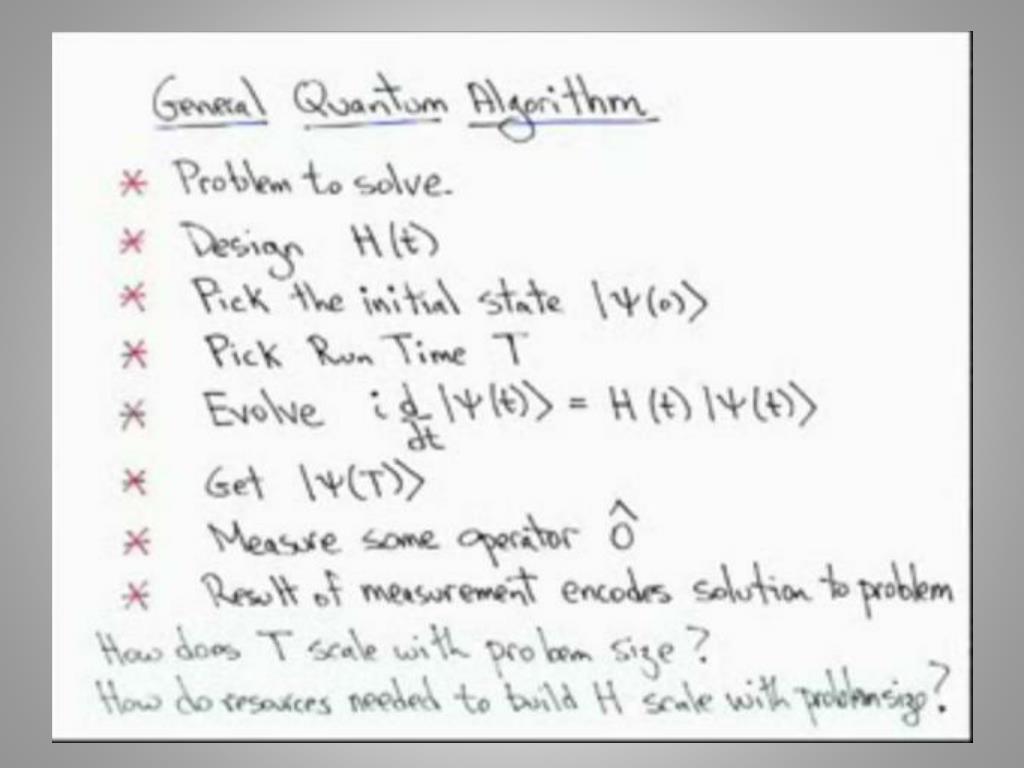 General Quantum Algorithm
* Problem to solve.
* Design H(t)
* Pick the initial state |Ψ(0)⟩
* Pick Run Time T
* Evolve i d/dt |Ψ(t)⟩ = H(t) |Ψ(t)⟩
* Get |Ψ(T)⟩
* Measure some operator Ô
* Result of measurement encodes solution to problem
How does T scale with problem size?
How do resources needed to build H scale with problem size?